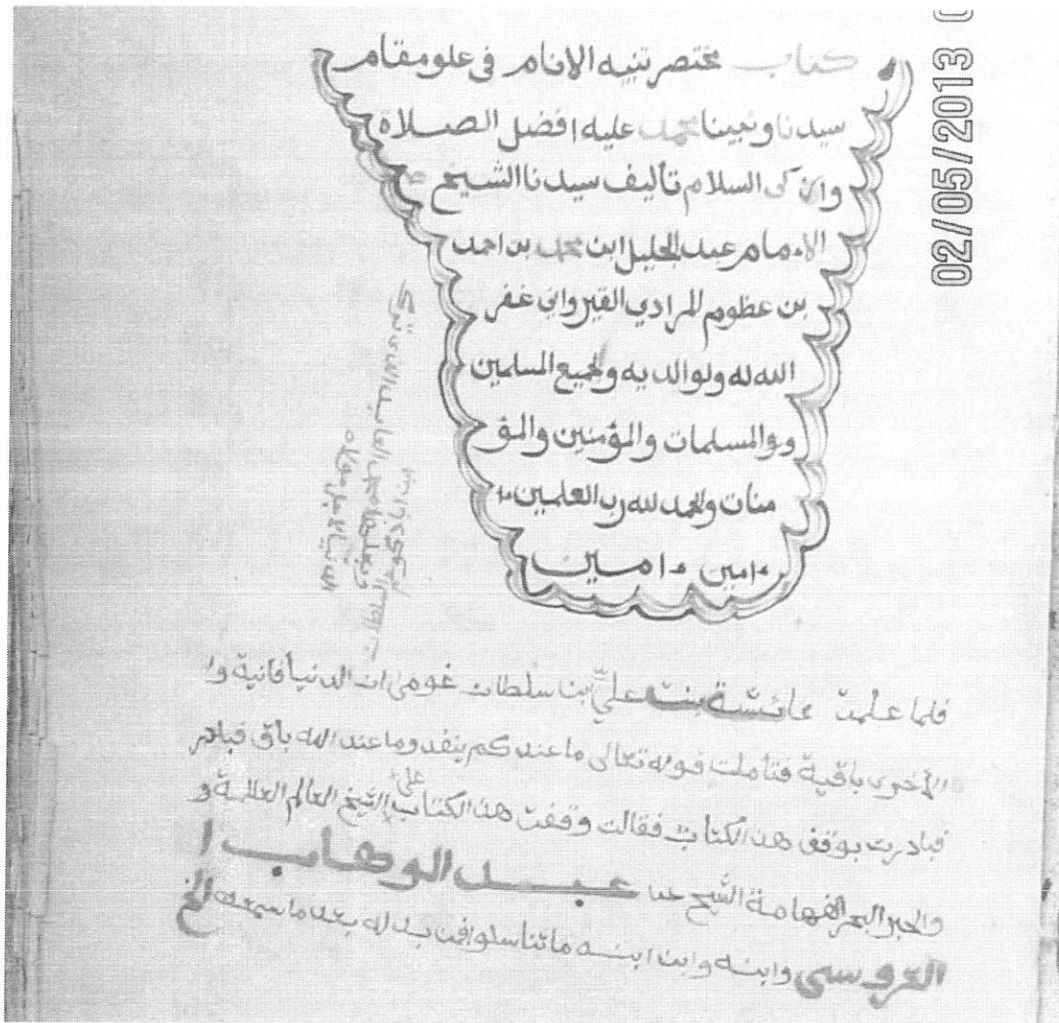 كتاب مختصر تنبيه الانام في علو مقام
سيدنا ونبينا محمد عليه افضل الصلاة
وازكى السلام تأليف سيدنا الشيخ
الامام عبد الجليل ابن محمد بن احمد
بن عظوم المرادي القيرواني غفر
الله له ولوالديه ولجميع المسلمين
ووالمسلمات والمؤمنين والمؤ
منات والحمد لله رب العلمين
ءامين ءامين
فلما علمت عائشة بنت علي بن سلطان غومى ان الدنيا فانية وا
الأخرى باقية فتأملت قوله تعالى ما عندكم ينفد وما عند الله باق فبادر
فبادرت بوقف هذا الكتاب فقالت وقفت هذا الكتاب على الشيخ العالم العلامة و
والحبر البحر الفهامة الشيخ عبد الوهاب ا
العروسي وابنه وابن ابنه ما تناسلوا فمن بدله بعد ما سمعه الخ
02/05/2013